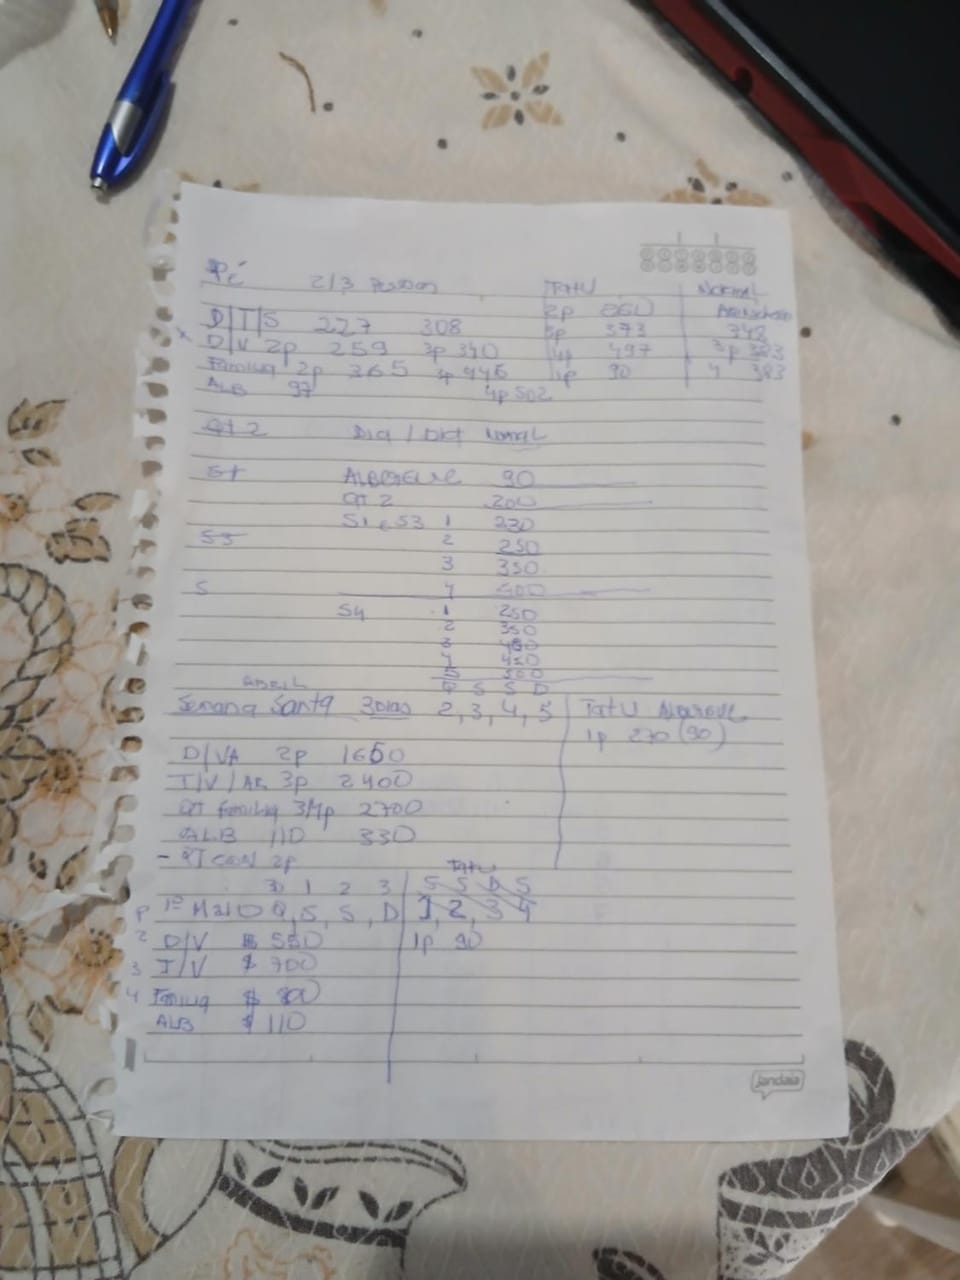 2/3 Pessoas
TATU
NORMAL
D|T|S 227 308
2p 260
3p 373
748
D|V 2p 259 3p 340
4p 497
3p 383
Familia 2p 365 3p 446
1p 90
4 383
ALB 97
4p 502
QT 2 Dia / Diat Normal
S1 Albergue 90
QT 2 200
S1 e S3 1 230
S3 2 250
3 350
S 4 400
S4 1 250
2 350
3 400
4 450
5 500
ABRIL Q S S D
Semana Santa 3 Dias 2, 3, 4, 5
Tatu Albergue
1p 270 (90)
D/VA 2p 1650
T/V/AR 3p 2400
QT familia 3/4p 2700
ALB 110 330
- QT CON 2p
Tatu
30 1 2 3
S S D S
P 1º Maio Q, S, S, D
1, 2, 3 4
2 D/V $ 550
1p 90
3 T/V $ 700
4 Familia $ 800
ALB $ 110
jandaia